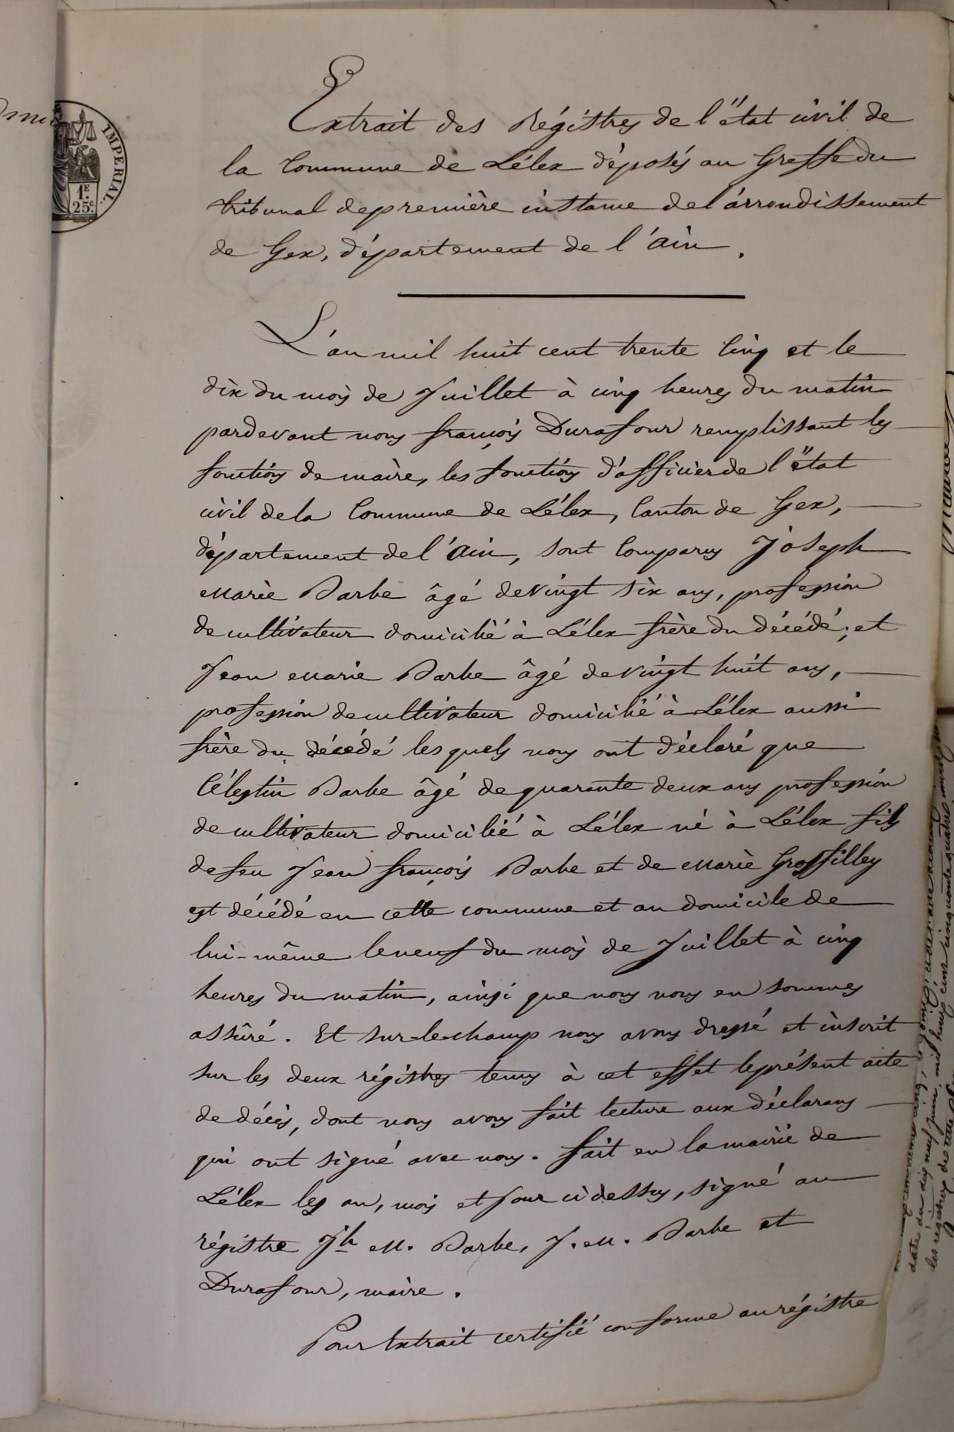 IMPERIAL.
1F.
25c.
Extrait des Régistres de l'état civil de
la Commune de Lélex déposés au Greffe du
tribunal de première instance de l'arrondissement
de Gex, département de l'Ain.
L'an mil huit cent trente Cinq et le
dix du mois de Juillet à cinq heures du matin
pardevant nous françois Durafour remplissant les
fonctions de maire, les fonctions d'officier de l'état
civil de la Commune de Lélex, Canton de Gex,
département de l'Ain, sont Comparus Joseph
Marie Barbe âgé de vingt six ans, profession
de cultivateur domicilié à Lélex frère du décédé; et
Jean Marie Barbe âgé de vingt huit ans,
profession de cultivateur domicilié à Lélex aussi
frère du décédé lesquels nous ont déclaré que
Célestin Barbe âgé de quarante deux ans profession
de cultivateur domicilié à Lélex né à Lélex fils
de feu Jean françois Barbe et de Marie Grosfilley
est décédé en cette commune et au domicile de
lui-même le neuf du mois de Juillet à cinq
heures du matin, ainsi que nous nous en sommes
assuré. Et sur-le-champ nous avons dressé et inscrit
sur les deux régistres tenus à cet effet le présent acte
de décès, dont nous avons fait lecture aux déclarans
qui ont signé avec nous. fait en la mairie de
Lélex les an, mois et jour ci dessus, signé au
régistre Jh M. Barbe, J. M. Barbe et
Durafour, maire.
Pour Extrait certifié conforme au régistre